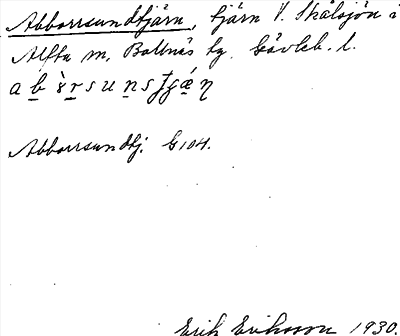 Abborrsundtjärn, tjärn V. Skålsjön i
Alfta sn, Bollnäs tg. Gävleb. l.
Abborrsundtj. G104.
Erik Eriksson 1930.